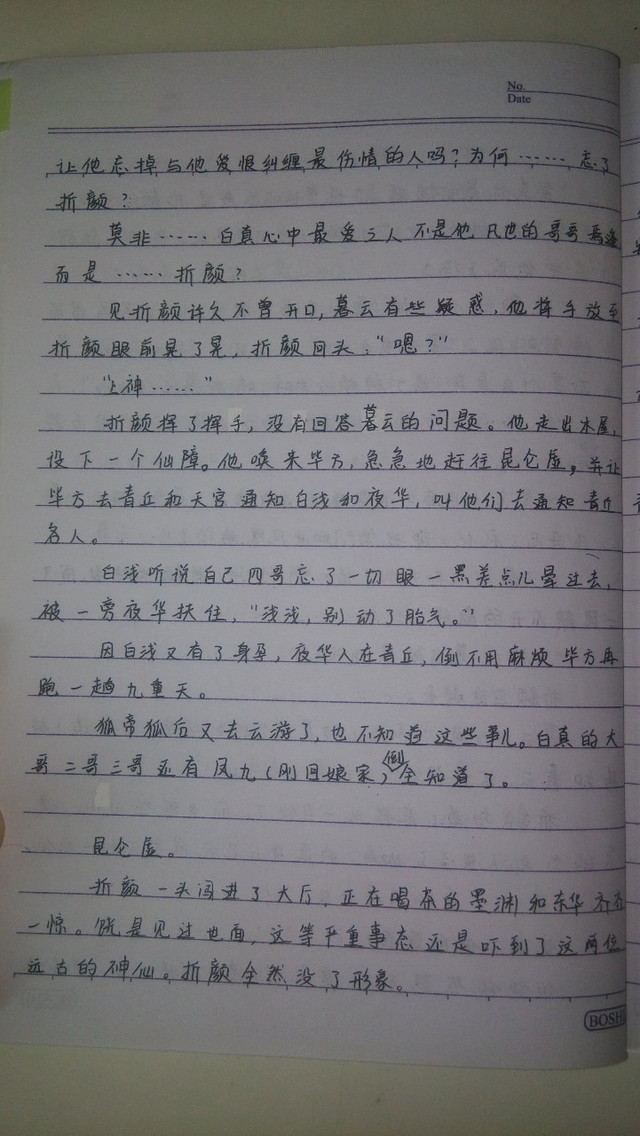 No.
Date
让他忘掉与他爱恨纠缠最伤情的人吗？为何……忘了
折颜？
莫非……白真心中最爱之人不是他凡世的哥哥
而是……折颜？
见折颜许久不曾开口，暮云有些疑惑，他将手放至
折颜眼前晃了晃，折颜回头："嗯？"
"上神……"
折颜挥了挥手，没有回答暮云的问题。他走出木屋，
设下一个仙障。他唤来毕方，急急地赶往昆仑虚，并让
毕方去青丘和天宫通知白浅和夜华，叫他们去通知青丘
各人。
白浅听说自己四哥忘了一切眼一黑差点儿晕过去，
被一旁夜华扶住，"浅浅，别动了胎气。"
因白浅又有了身孕，夜华人在青丘，倒不用麻烦毕方再
跑一趟九重天。
狐帝狐后又去云游了，也不知道这些事儿。白真的大
哥二哥三哥还有凤九（刚回娘家）倒全知道了。
昆仑虚。
折颜一头闯进了大厅，正在喝茶的墨渊和东华齐齐
一惊。饶是见过世面，这等严重事态还是吓到了这两位
远古的神仙。折颜全然没了形象。
BOSH